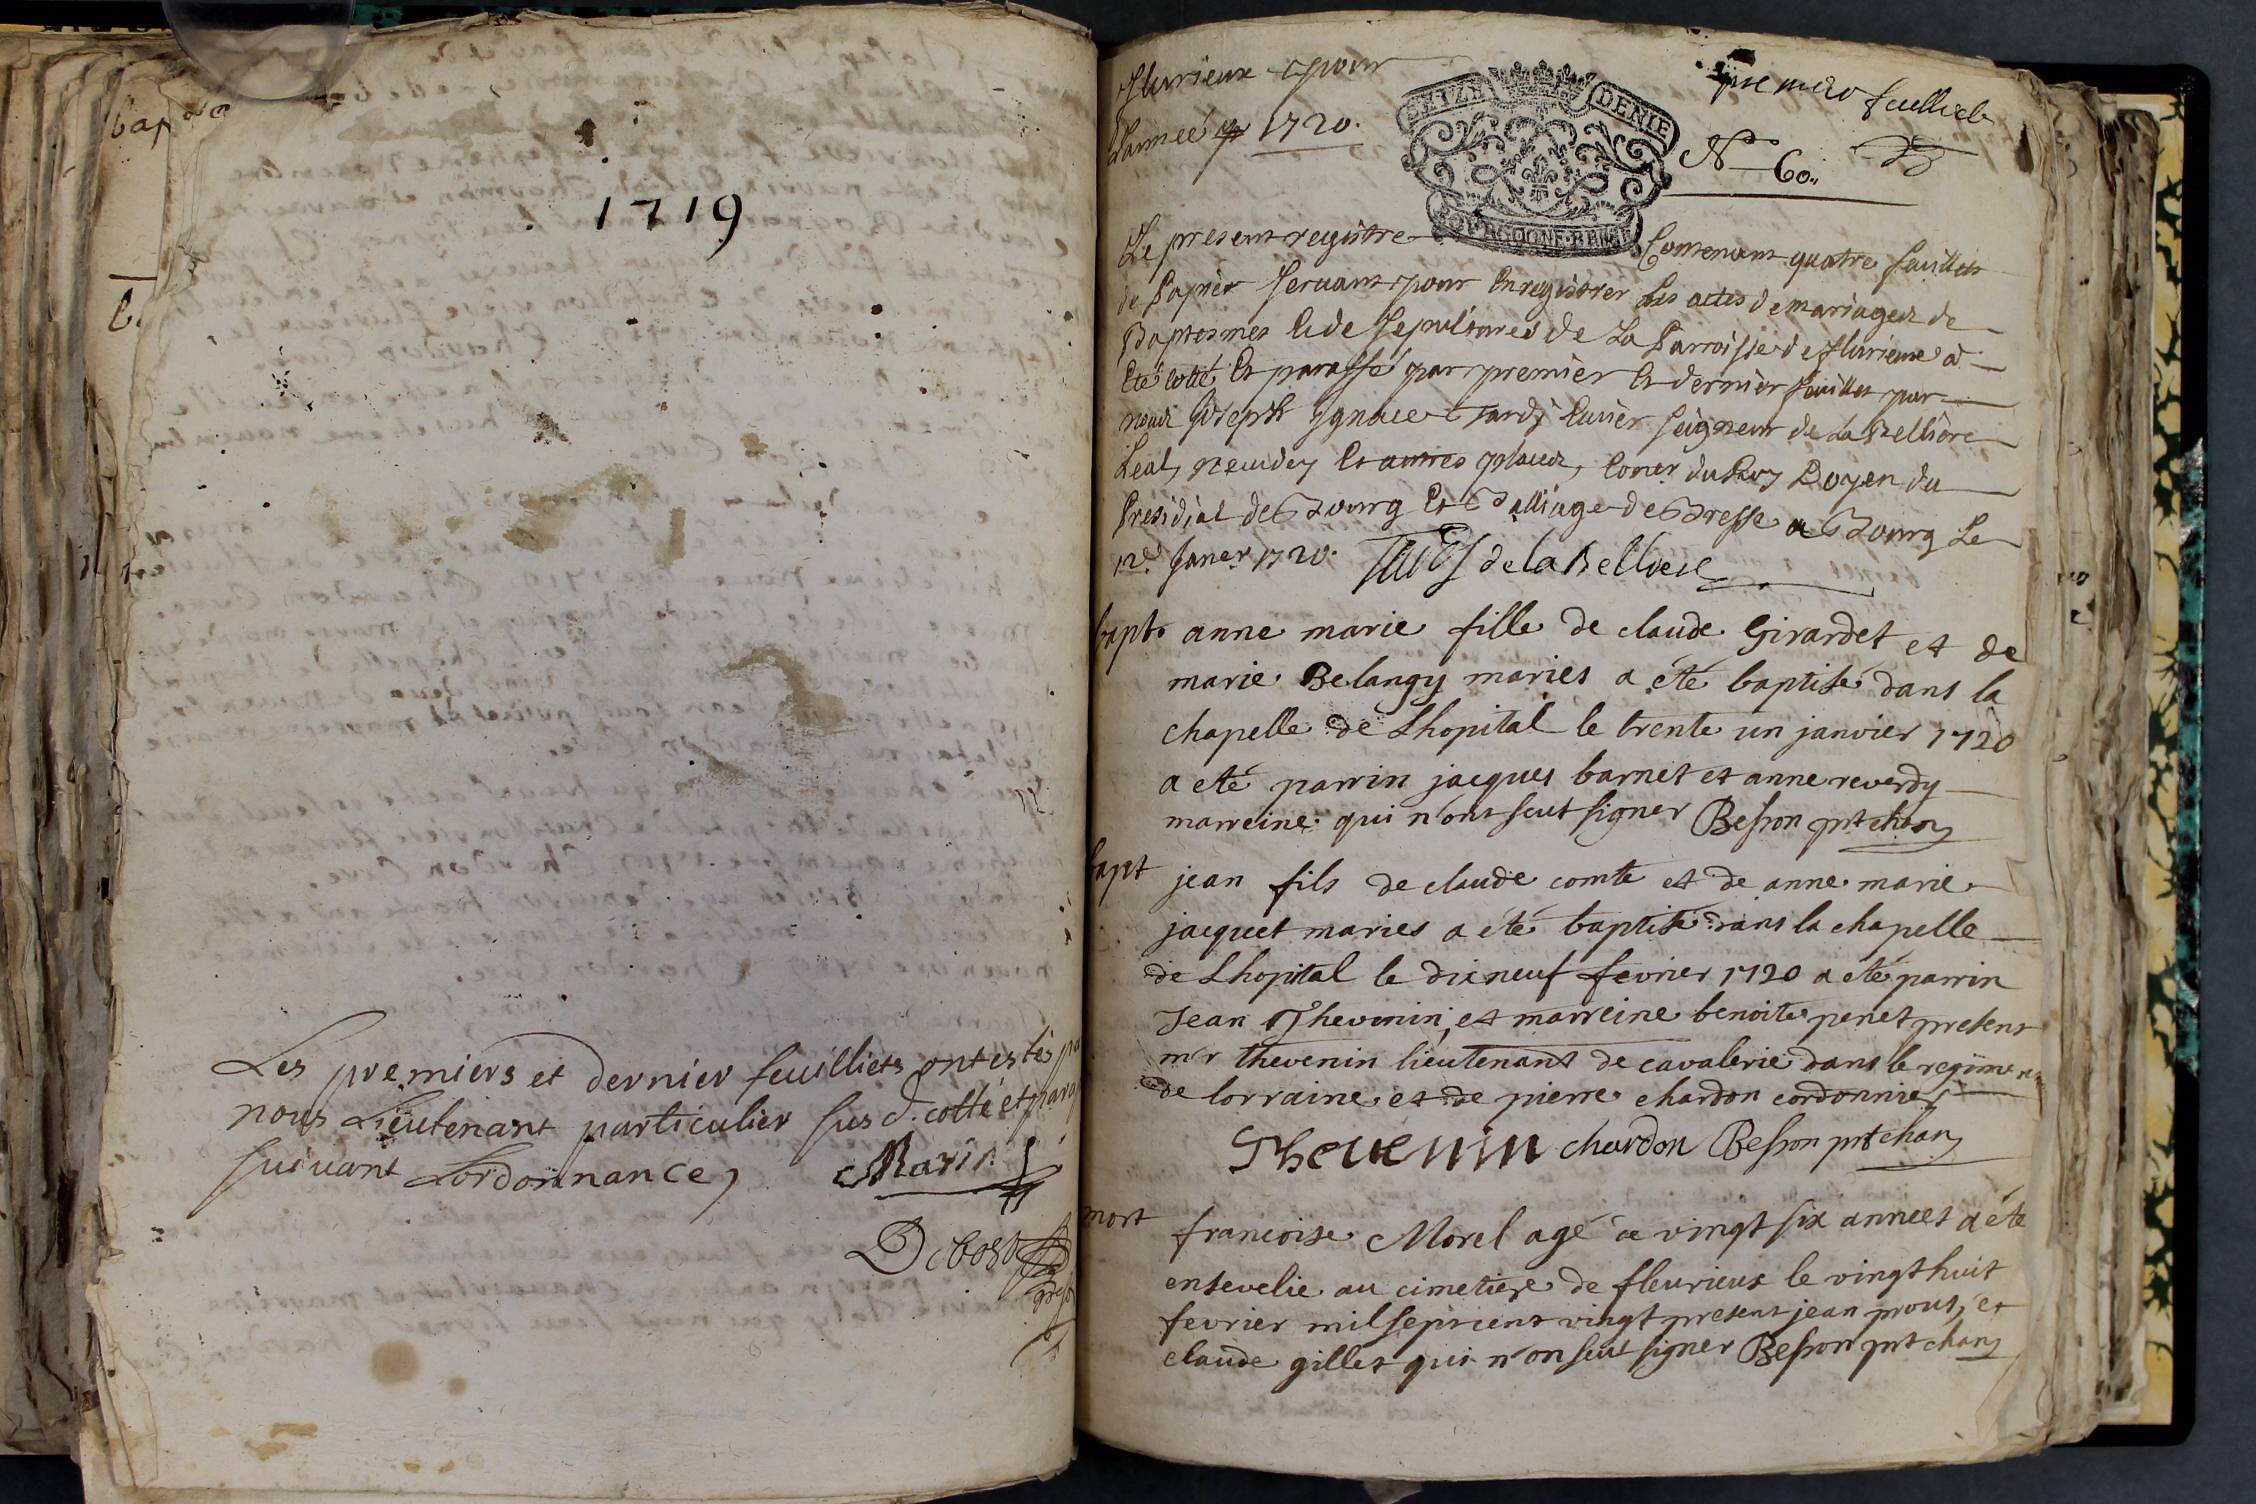 1719
Les premiers et dernier feuilliets ont estés pa
nous Lieutenant particulier susd. cotté et para
suivant Lordonnance
Marin
Debost
flurieux pour
Lannee 1720.
SEIZE DENIE
BOURGOGNE BRESSE
premier feulliet
N 60.
Le present registre Contenant quatre feuillets
de papier servant pour Enregistrer Les actes de mariages de
Baptesmes et de sepultures de La Parroisse de flurieux a
Eté cotté Et paraffé par premier Et dernier feuillet par
nous Joseph Ignace Tardy Ecuier seigneur de La Belliere
Leal, Et autres places, Coner du Roy Doyen du
Presidial de Bourg Et Balliage de Bresse a Bourg Le
12e Janer 1720. Tardy de la Belliere
bapt anne marie fille de claude Girardet et de
marie Belangy maries a été baptisé dans la
chapelle de Lhopital le trente un janvier 1720
a eté parrin jacques barnet et anne reverdy
marreine qui n'ont seut signer Besson prt chan
bapt jean fils de claude comte et de anne marie
jacquet maries a été baptisé dans la chapelle
de Lhopital le dixneuf fevrier 1720 a eté parrin
Jean Thevenin et marreine benoite penet present
mr thevenin lieutenant de cavalerie dans le regimen
de lorraine et de pierre chardon cordonnier
Thevenin chardon Besson prt chan
mort francoise Morel agé de vingt six années a été
ensevelie au cimetiere de fleurieux le vingt huit
fevrier mil sept cent vingt present jean prout, et
claude gillet qui n'on seut signer Besson prt chan